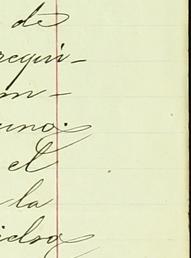 de
requi-
m-
uno.
el
la
idro